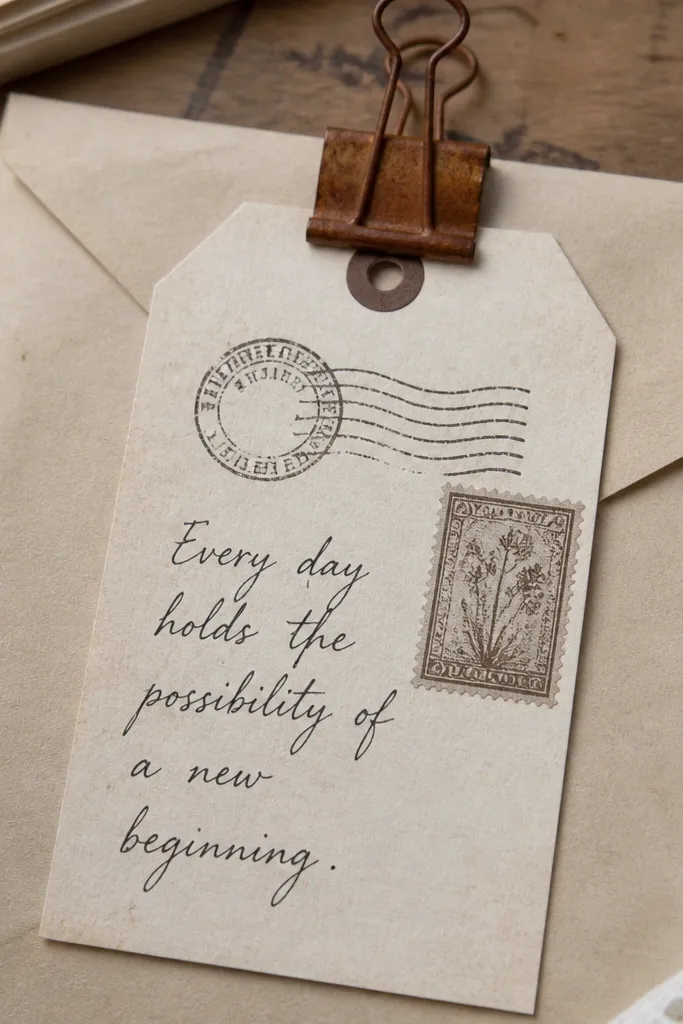 Every day
holds the
possibility of
a new
beginning.